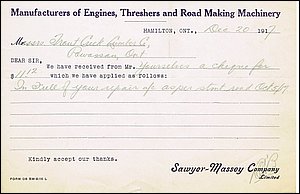 Manufacturers of Engines, Threshers and Road Making Machinery
HAMILTON, ONT., Dec 20 1917
Messrs Trout Creek Lumber Co,
Powassan, Ont
DEAR SIR,
We have received from Mr. Yourselves a cheque for
$11.12 which we have applied as follows:
In full of your repair a/c as per stmt rend Oct 5/17
Kindly accept our thanks.
Sawyer-Massey Company
Limited